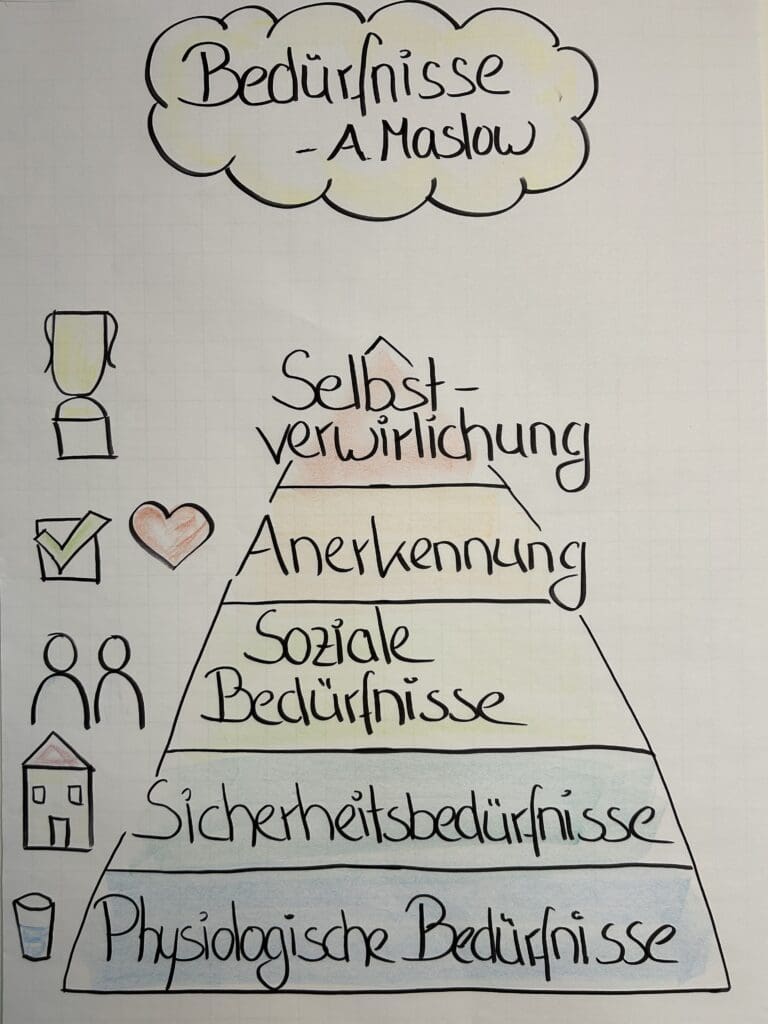 Bedürfnisse
- A. Maslow
Selbst-
verwirlichung
Anerkennung
Soziale
Bedürfnisse
Sicherheitsbedürfnisse
Physiologische Bedürfnisse